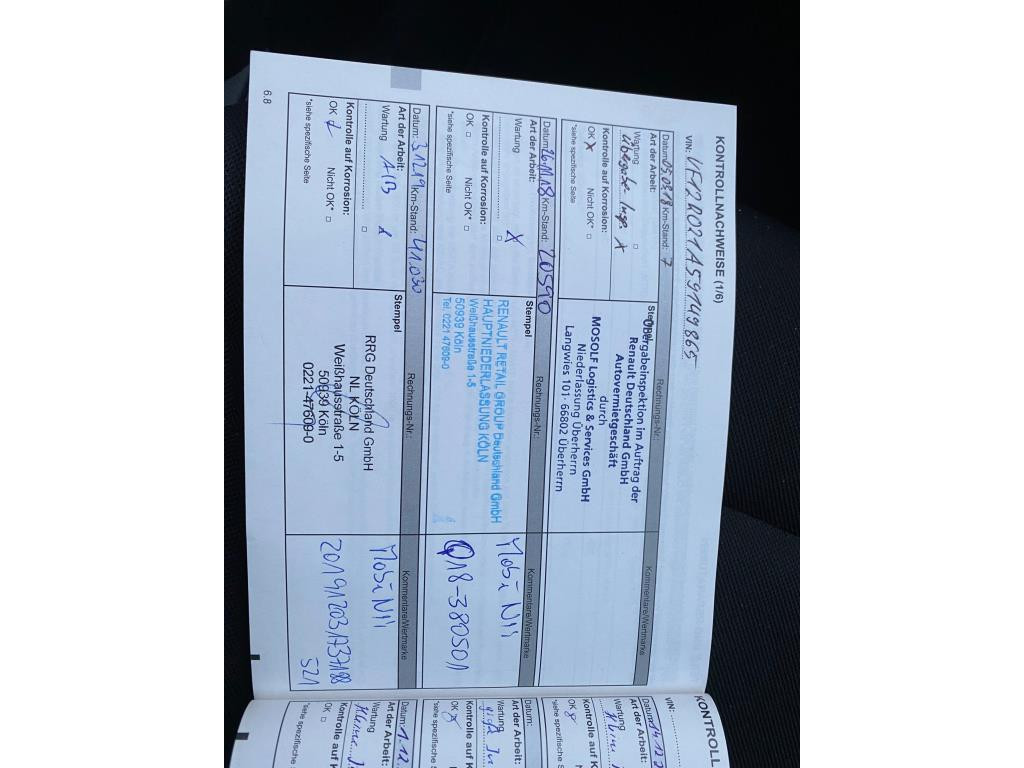 KONTROLLNACHWEISE (1/6)
VIN: VF12R021A59149865
Datum: 03.08.18 Km-Stand: 7
Rechnungs-Nr.:
Kommentare/Wertmarke
Art der Arbeit:
Stempel
Wartung
Übergabe Insp. X
Kontrolle auf Korrosion:
OK X Nicht OK*
*siehe spezifische Seite
Übergabeinspektion im Auftrag der
Renault Deutschland GmbH
Autovermietgeschäft
durch
MOSOLF Logistics & Services GmbH
Niederlassung Überherrn
Langwies 101· 66802 Überherrn
Datum: 26.11.18 Km-Stand: 20590
Rechnungs-Nr.:
Kommentare/Wertmarke
Stempel
Wartung X
Kontrolle auf Korrosion:
OK Nicht OK*
*siehe spezifische Seite
RENAULT RETAIL GROUP Deutschland GmbH
HAUPTNIEDERLASSUNG KÖLN
Weißhausstraße 1-5
50939 Köln
Tel. 0221 47609-0
18-380501
Datum: 3.12.19 Km-Stand: 41.030
Rechnungs-Nr.:
Kommentare/Wertmarke
Art der Arbeit:
Stempel
Wartung A/B
Kontrolle auf Korrosion:
OK Nicht OK*
*siehe spezifische Seite
RRG Deutschland GmbH
NL KÖLN
Weißhausstraße 1-5
50939 Köln
0221-47609-0
521
6.8
KONTROLL
VIN:
Datum: 14.12.2
Art der Arbeit:
Wartung
Kontrolle auf K
OK
*siehe spezifische
Datum:
Art der Arbeit:
Wartung
Kontrolle auf K
OK
*siehe spezifische
Datum: 1.12.
Art der Arbeit:
Wartung
Kontrolle auf K
OK
*siehe spezifische